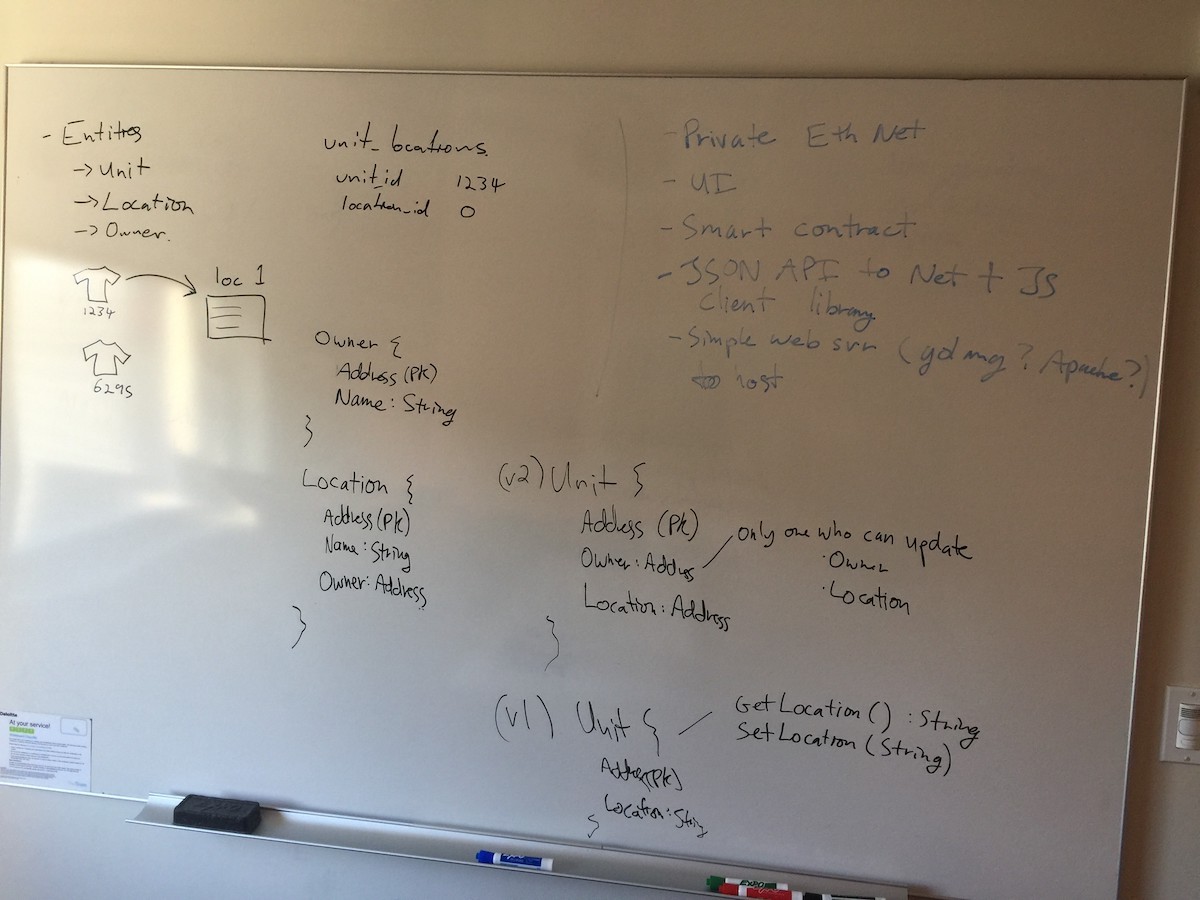 - Entities
-> Unit
-> Location
-> Owner.
1234
6295
loc 1
unit_locations.
unit_id 1234
location_id 0
Owner {
Address (PK)
Name: String
}
Location {
Address (PK)
Name: String
Owner: Address
}
- Private Eth Net
- UI
- Smart contract
- JSON API to Net + JS
client library
- Simple web svr (golang? Apache?)
to host
(v2) Unit {
Address (PK)
Owner: Address
Location: Address
}
only one who can update
· Owner
· Location
(v1) Unit {
Address (PK)
Location: String
}
GetLocation() : String
SetLocation (String)
Deloitte
At your service!
EXPO
EXPO